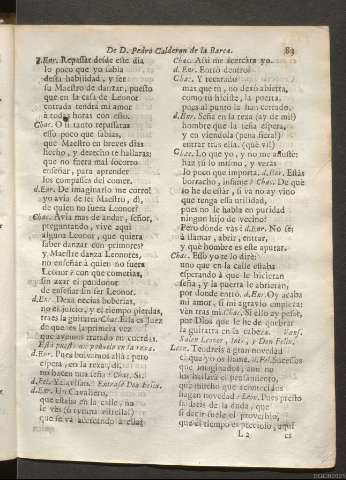 De D. Pedro Calderon de la Barca. 83
d.Enr. Repassar desde este dia
lo poco que yo sabia
desta habilidad, y ser
su Maestro de danzar, puesto
que en la casa de Leonor
entrada tendrá mi amor
à todas horas con esso.
Chac. O si tanto repassaras
esso poco que sabias,
que Maestro en breves dias
hecho, y derecho te hallaras;
que no fuera mal socorro
enseñar, para aprender
los compases del comer.
d.Enr. De imaginarlo me corro!
yo avia de ser Maestro, di,
de quien no fuera Leonor?
Chac. Avia mas de andar, señor,
preguntando, vive aqui
alguna Leonor, que quiera
saber danzar con primores?
y Maestre danza Leonores,
no enseñar à quien no fuera
Leonor? con que comerias,
sin azar el pundonor
de enseñar sin ser Leonor.
d.Enr. Dexa necias boberias,
no el juicio, y el tiempo pierdas,
traes la guitarra? Chac. Ella es Juez
de que es la primera vez
que avemos tratado en cuerdas.
Està puesto un pañuelo en la rexa.
d.Enr. Pues bolvamos allà: pero
espera, en la rexa, di,
no hacen una seña? Chac. Si.
d.Fel. Ya avisan. Entrase Don Felix.
d.Enr. Un Cavallero,
que estaba en la calle, no
le vès (ò tyrana estrella!)
que se va acercando à ella?
Chac. Assi me acercàra yo.
d.Enr. Entrò dentro?
Chac. Y recatado
mas que tu, no dexò abierta,
como tu hiciste, la puerta,
pues al punto la han cerrado.
d.Enr. Seña en la rexa (ay de mi!)
hombre que la seña espera,
y en viendola (pena fiera!)
entrar tras ella. (què vi!)
Chac. Lo que yo, y no me assusté:
haz tu lo mismo, y veràs
lo poco que importa. d.Enr. Estàs
borracho, infame? Chac. De què
lo he de estar, si ya no ay vino
que tenga essa utilidad,
pues no le habla en puridad
ningun hijo de vecino?
Pero donde vàs? d.Enr. No sé;
à llamar, abrir, entrar,
y què hombre es este apurar.
Chac. Esso yo te lo diré:
uno que en la calle estaba
esperando à que le hicieran
seña, y la puerta le abrieran,
por donde entrò. d.Enr. Oy acaba
mi amor, si mi agravio empieza:
ven tras mi. Chac. Si ello ay pesar,
por Dios que le he de quebrar
la guitarra en la cabeza. Vanse.
Salen Leonor, Inés, y Don Felix.
Leon. Tendreis a gran novedad
el que yo os llame. d.Fel. Sucessos
que imaginados, aun no
los hallaba el pensamiento,
què mucho que acontecidos
hagan novedad? Leon. Pues presto
saldreis de la duda, que
si decir suele el proverbio,
que el tiempo es precioso, aqui
L 2 es